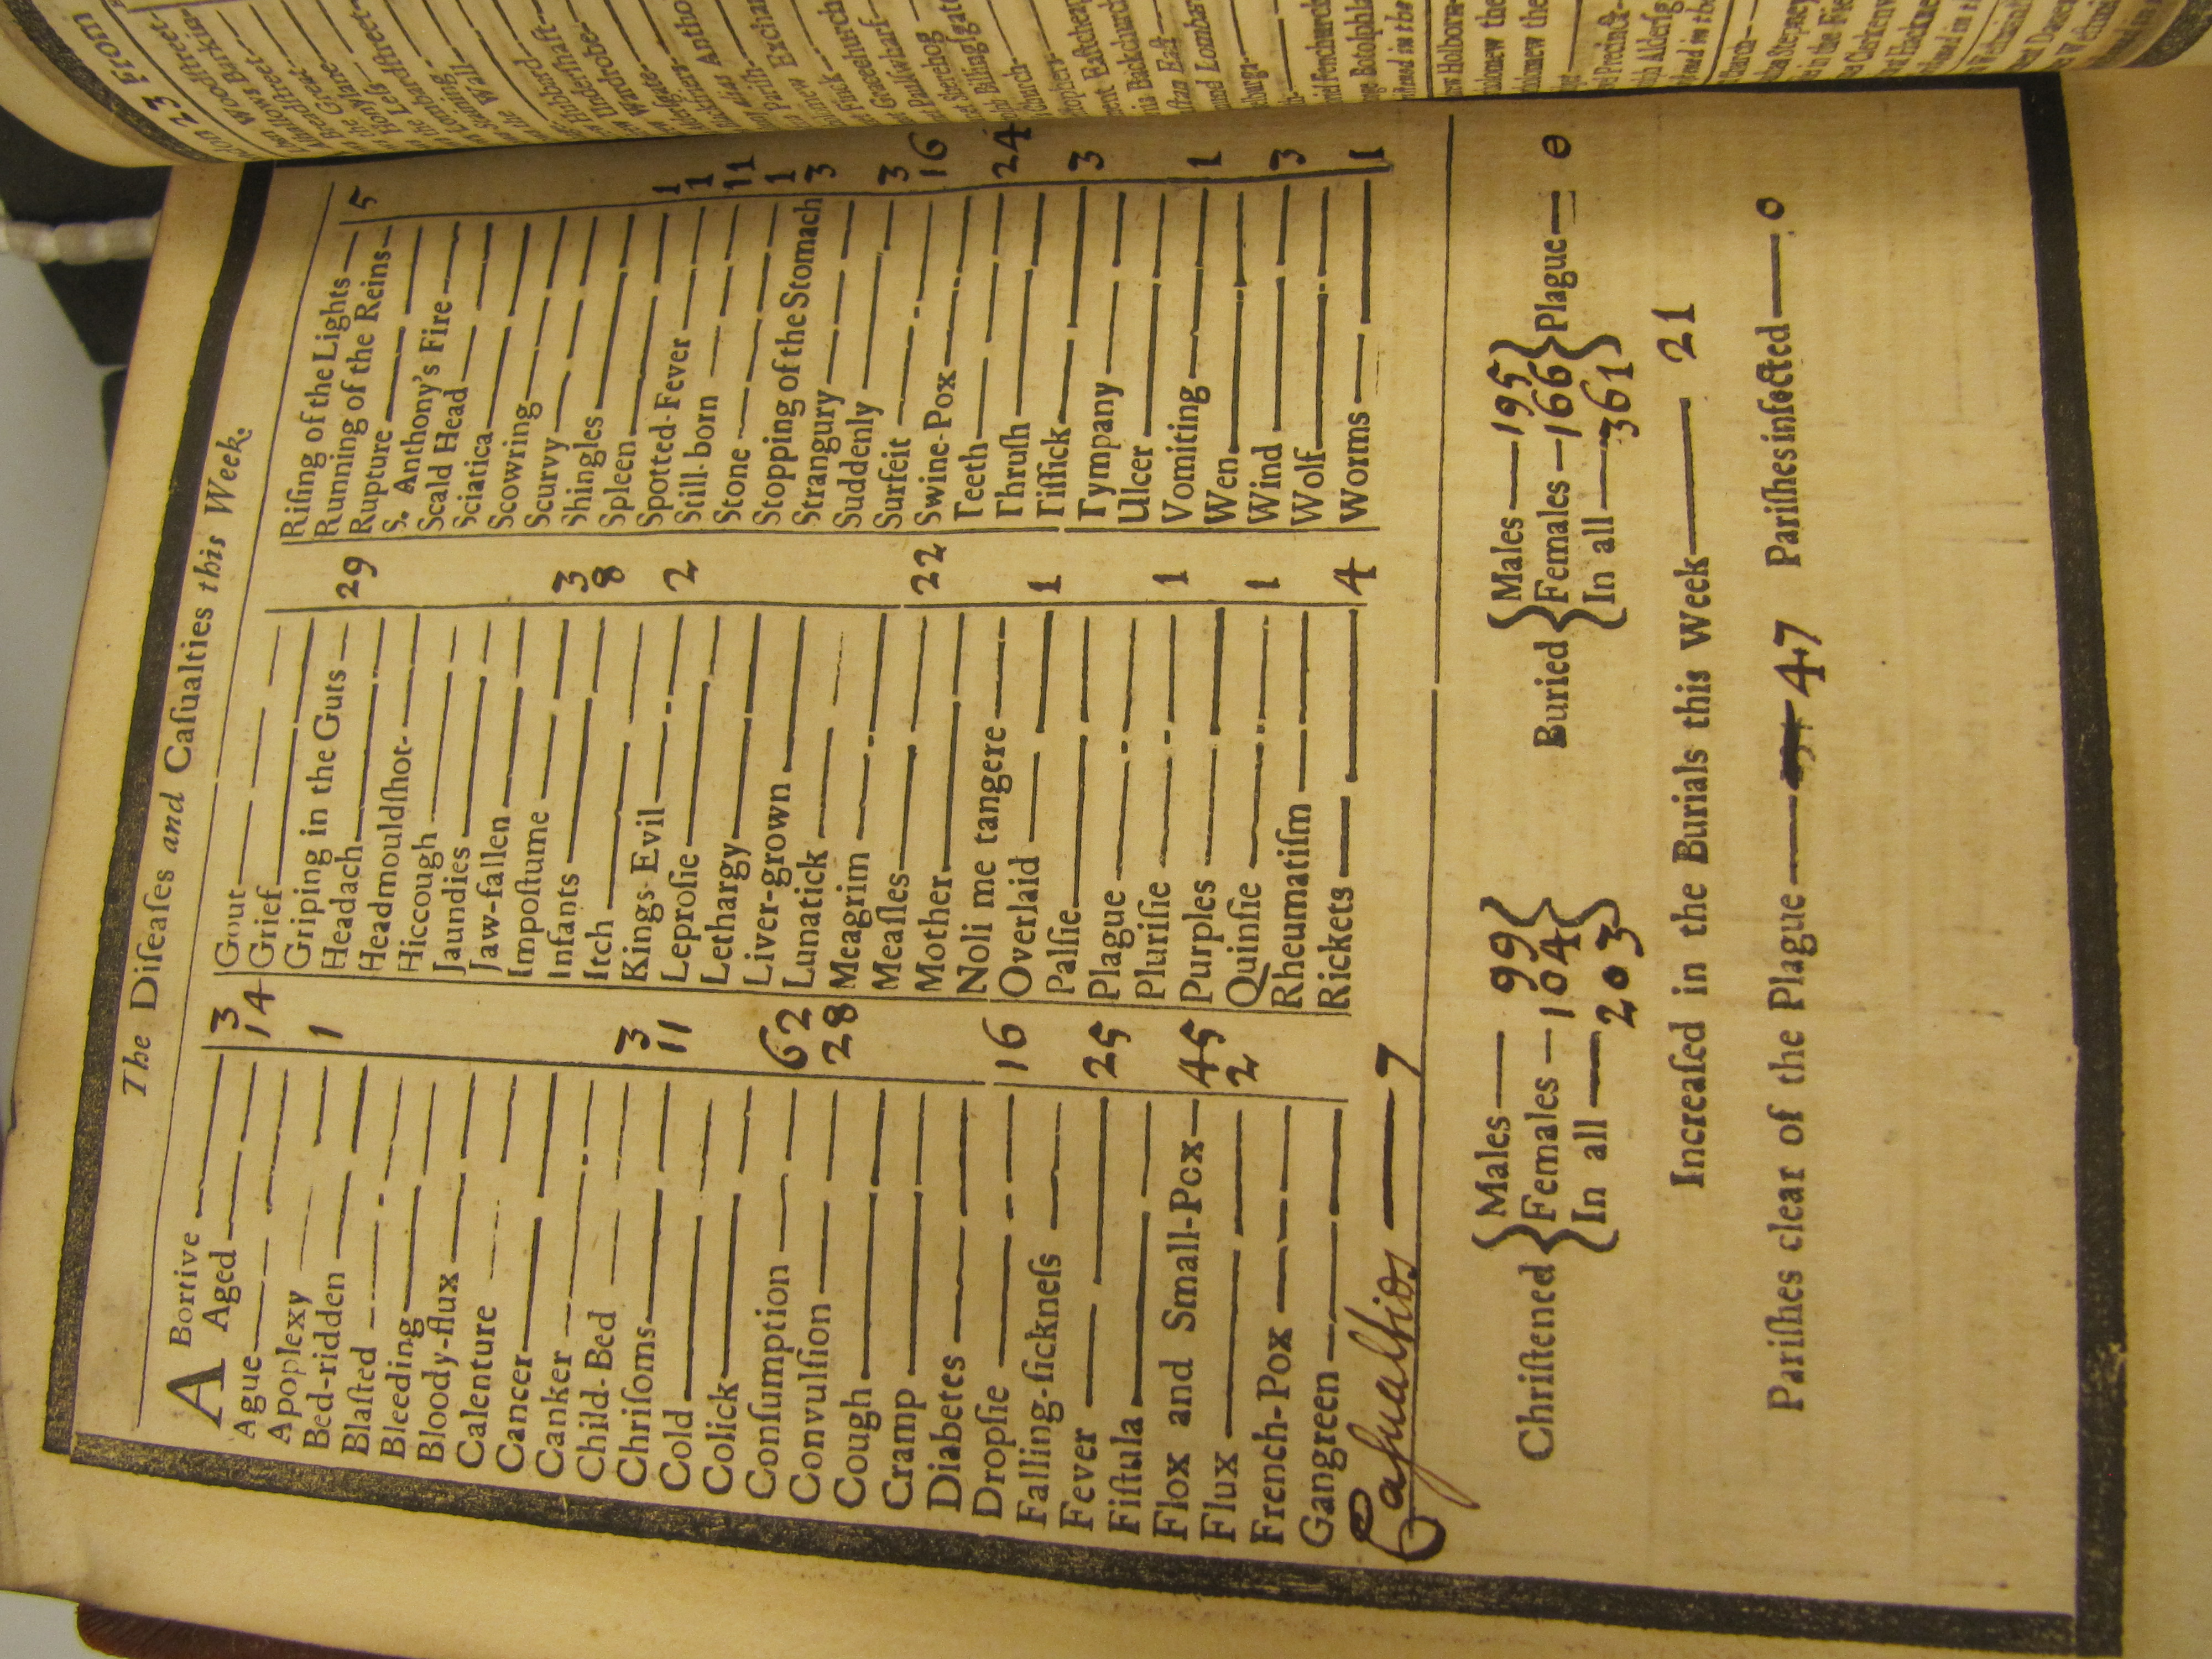 The Diſeaſes and Caſualties this Week.
ABortive 3
Aged 14
Ague
Apoplexy 1
Bed-ridden
Blaſted
Bleeding
Bloody-flux
Calenture
Cancer
Canker
Child-Bed 3
Chriſoms 11
Cold
Colick
Conſumption 62
Convulſion 28
Cough
Cramp
Diabetes
Dropſie 16
Falling-ſickneſs
Fever 25
Fiſtula
Flox and Small-Pox 45
Flux 2
French-Pox
Gangreen
Caſualties 7
Gout
Grief
Griping in the Guts 29
Headach
Headmouldſhot
Hiccough
Jaundies
Jaw-fallen
Impoſtume 3
Infants 8
Itch
Kings-Evil 2
Leproſie
Lethargy
Liver-grown
Lunatick
Meagrim
Meaſles 22
Mother
Noli me tangere
Overlaid 1
Palſie
Plague
Pluriſie 1
Purples
Quinſie 1
Rheumatiſm
Rickets 4
Riſing of the Lights 5
Running of the Reins
Rupture
S. Anthony's Fire
Scald Head
Sciatica
Scowring
Scurvy
Shingles
Spleen 1
Spotted-Fever 1
Still-born 11
Stone 1
Stopping of the Stomach 3
Strangury
Suddenly 3
Surfeit 16
Swine-Pox
Teeth 24
Thruſh
Tiſſick 3
Tympany
Ulcer
Vomiting 1
Wen
Wind 3
Wolf
Worms 1
Chriſtened { Males 99
Females 104
In all 203 }
Buried { Males 195
Females 166
In all 361 } Plague 0
Increaſed in the Burials this Week 21
Pariſhes clear of the Plague 47 Pariſhes infected 0
23 From